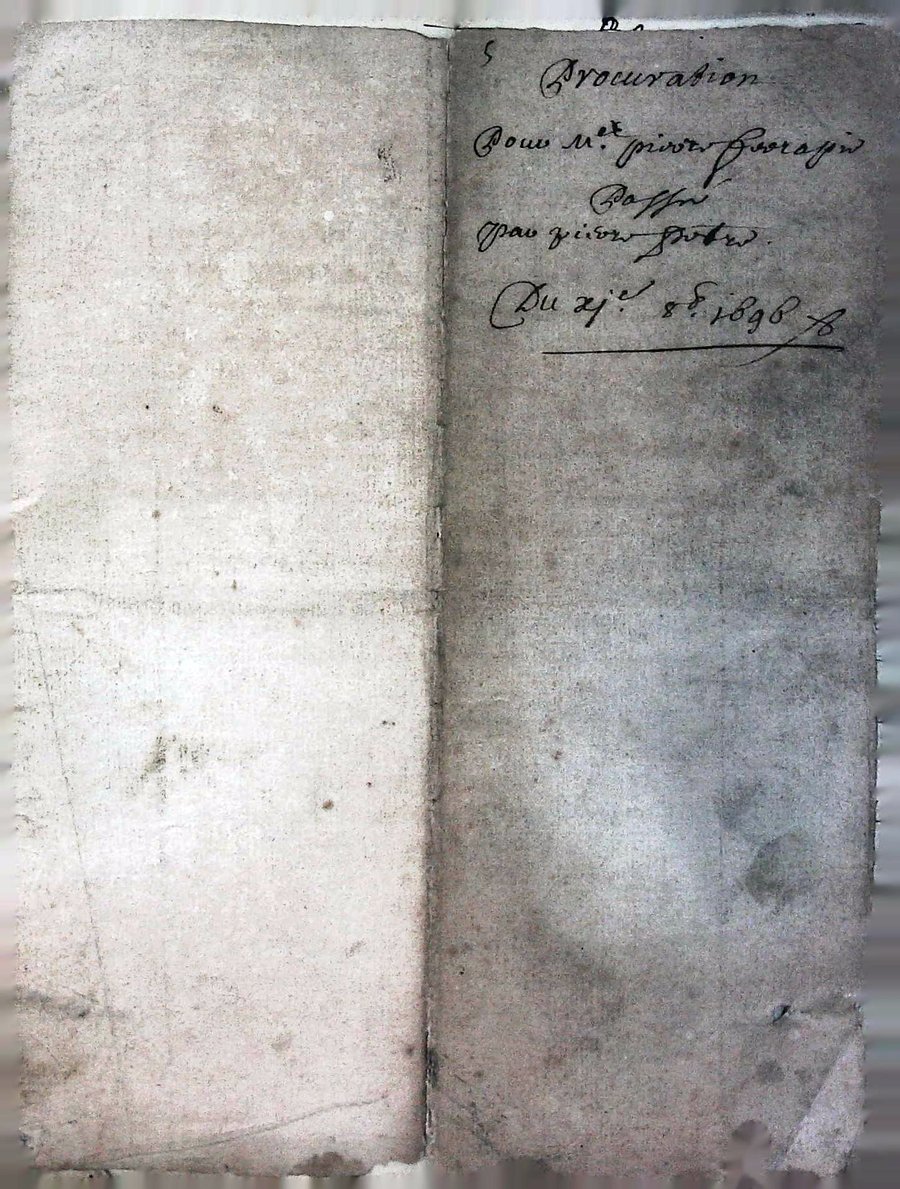 Procuration
Pour Me. pierre
Passée
par pierre
Du xje. 8b. 1696